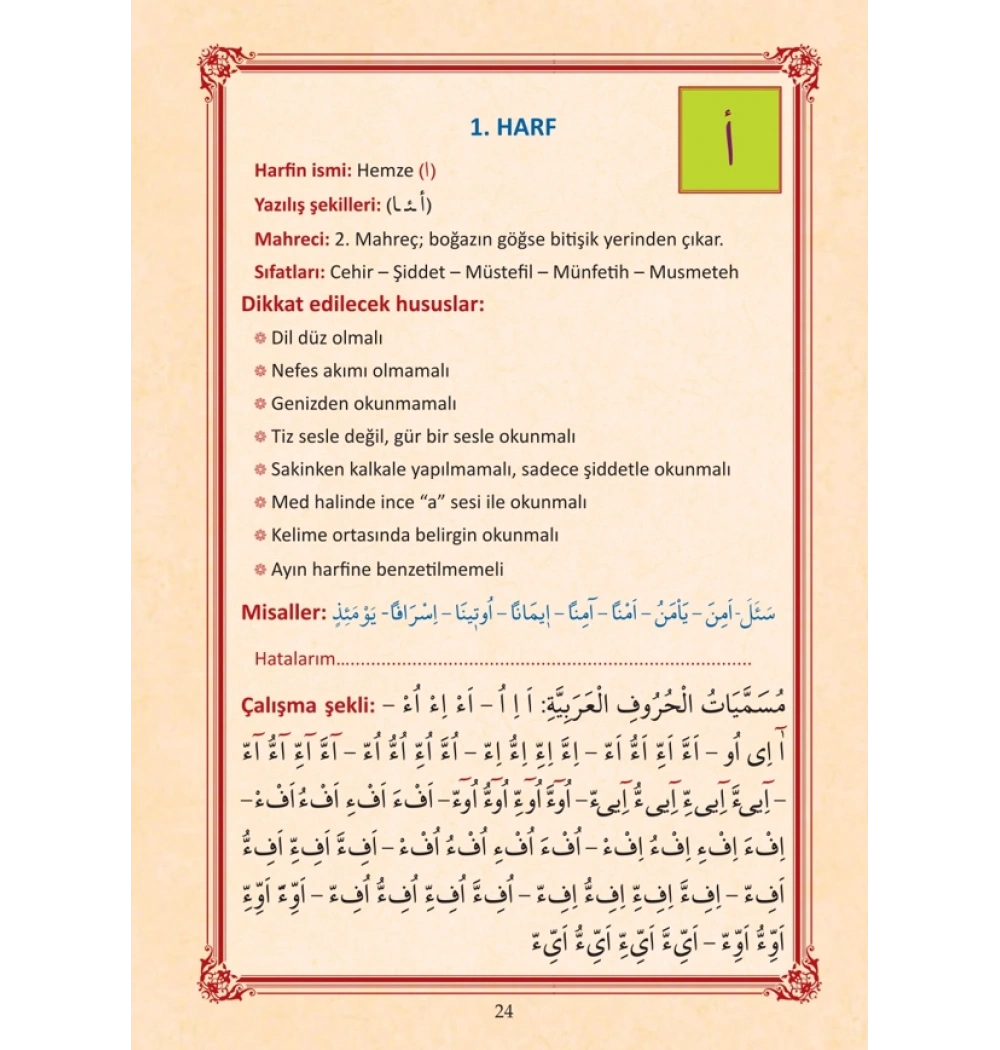 أ
1. HARF
Harfin ismi: Hemze (ا)
Yazılış şekilleri: (أ ـئـ ـا)
Mahreci: 2. Mahreç; boğazın göğse bitişik yerinden çıkar.
Sıfatları: Cehir – Şiddet – Müstefil – Münfetih – Musmeteh
Dikkat edilecek hususlar:
Dil düz olmalı
Nefes akımı olmamalı
Genizden okunmamalı
Tiz sesle değil, gür bir sesle okunmalı
Sakinken kalkale yapılmamalı, sadece şiddetle okunmalı
Med halinde ince “a” sesi ile okunmalı
Kelime ortasında belirgin okunmalı
Ayın harfine benzetilmemeli
Misaller: سَئَلَ- اَمِنَ – يَاْمَنُ – اَمْنًا – اٰمِنًا – اٖيمَانًا – اُوتٖينَا – اِسْرَافًا- يَوْمَئِذٍ
Hatalarım.................................................................................
Çalışma şekli: مُسَمَّيَاتُ الْحُرُوفِ الْعَرَبِيَّةِ: اَ اِ اُ – اَءْ اِءْ اُءْ –
اٰ اِى اُو – اَءَّ اَءِّ اَءُّ اَءّ – اِءَّ اِءِّ اِءُّ اِءّ – اُءَّ اُءِّ اُءُّ اُءّ – آءَّ آءِّ آءُّ آءّ
– اَيىءَّ اَيىءِّ اَيىءُّ اَيىءّ – اُوءَّ اُوءِّ اُوءُّ اُوءّ – اَفْءَ اَفْءِ اَفْءُ اَفْءْ –
اِفْءَ اِفْءِ اِفْءُ اِفْءْ – اُفْءَ اُفْءِ اُفْءُ اُفْءْ – اَفِءَّ اَفِءِّ اَفِءُّ
اَفِءّ – اِفِءَّ اِفِءِّ اِفِءُّ اِفِءّ – اُفِءَّ اُفِءِّ اُفِءُّ اُفِءّ – اَوِّءَّ اَوِّءِّ
اَوِّءُّ اَوِّءّ – اَيِّءَّ اَيِّءِّ اَيِّءُّ اَيِّءّ
24